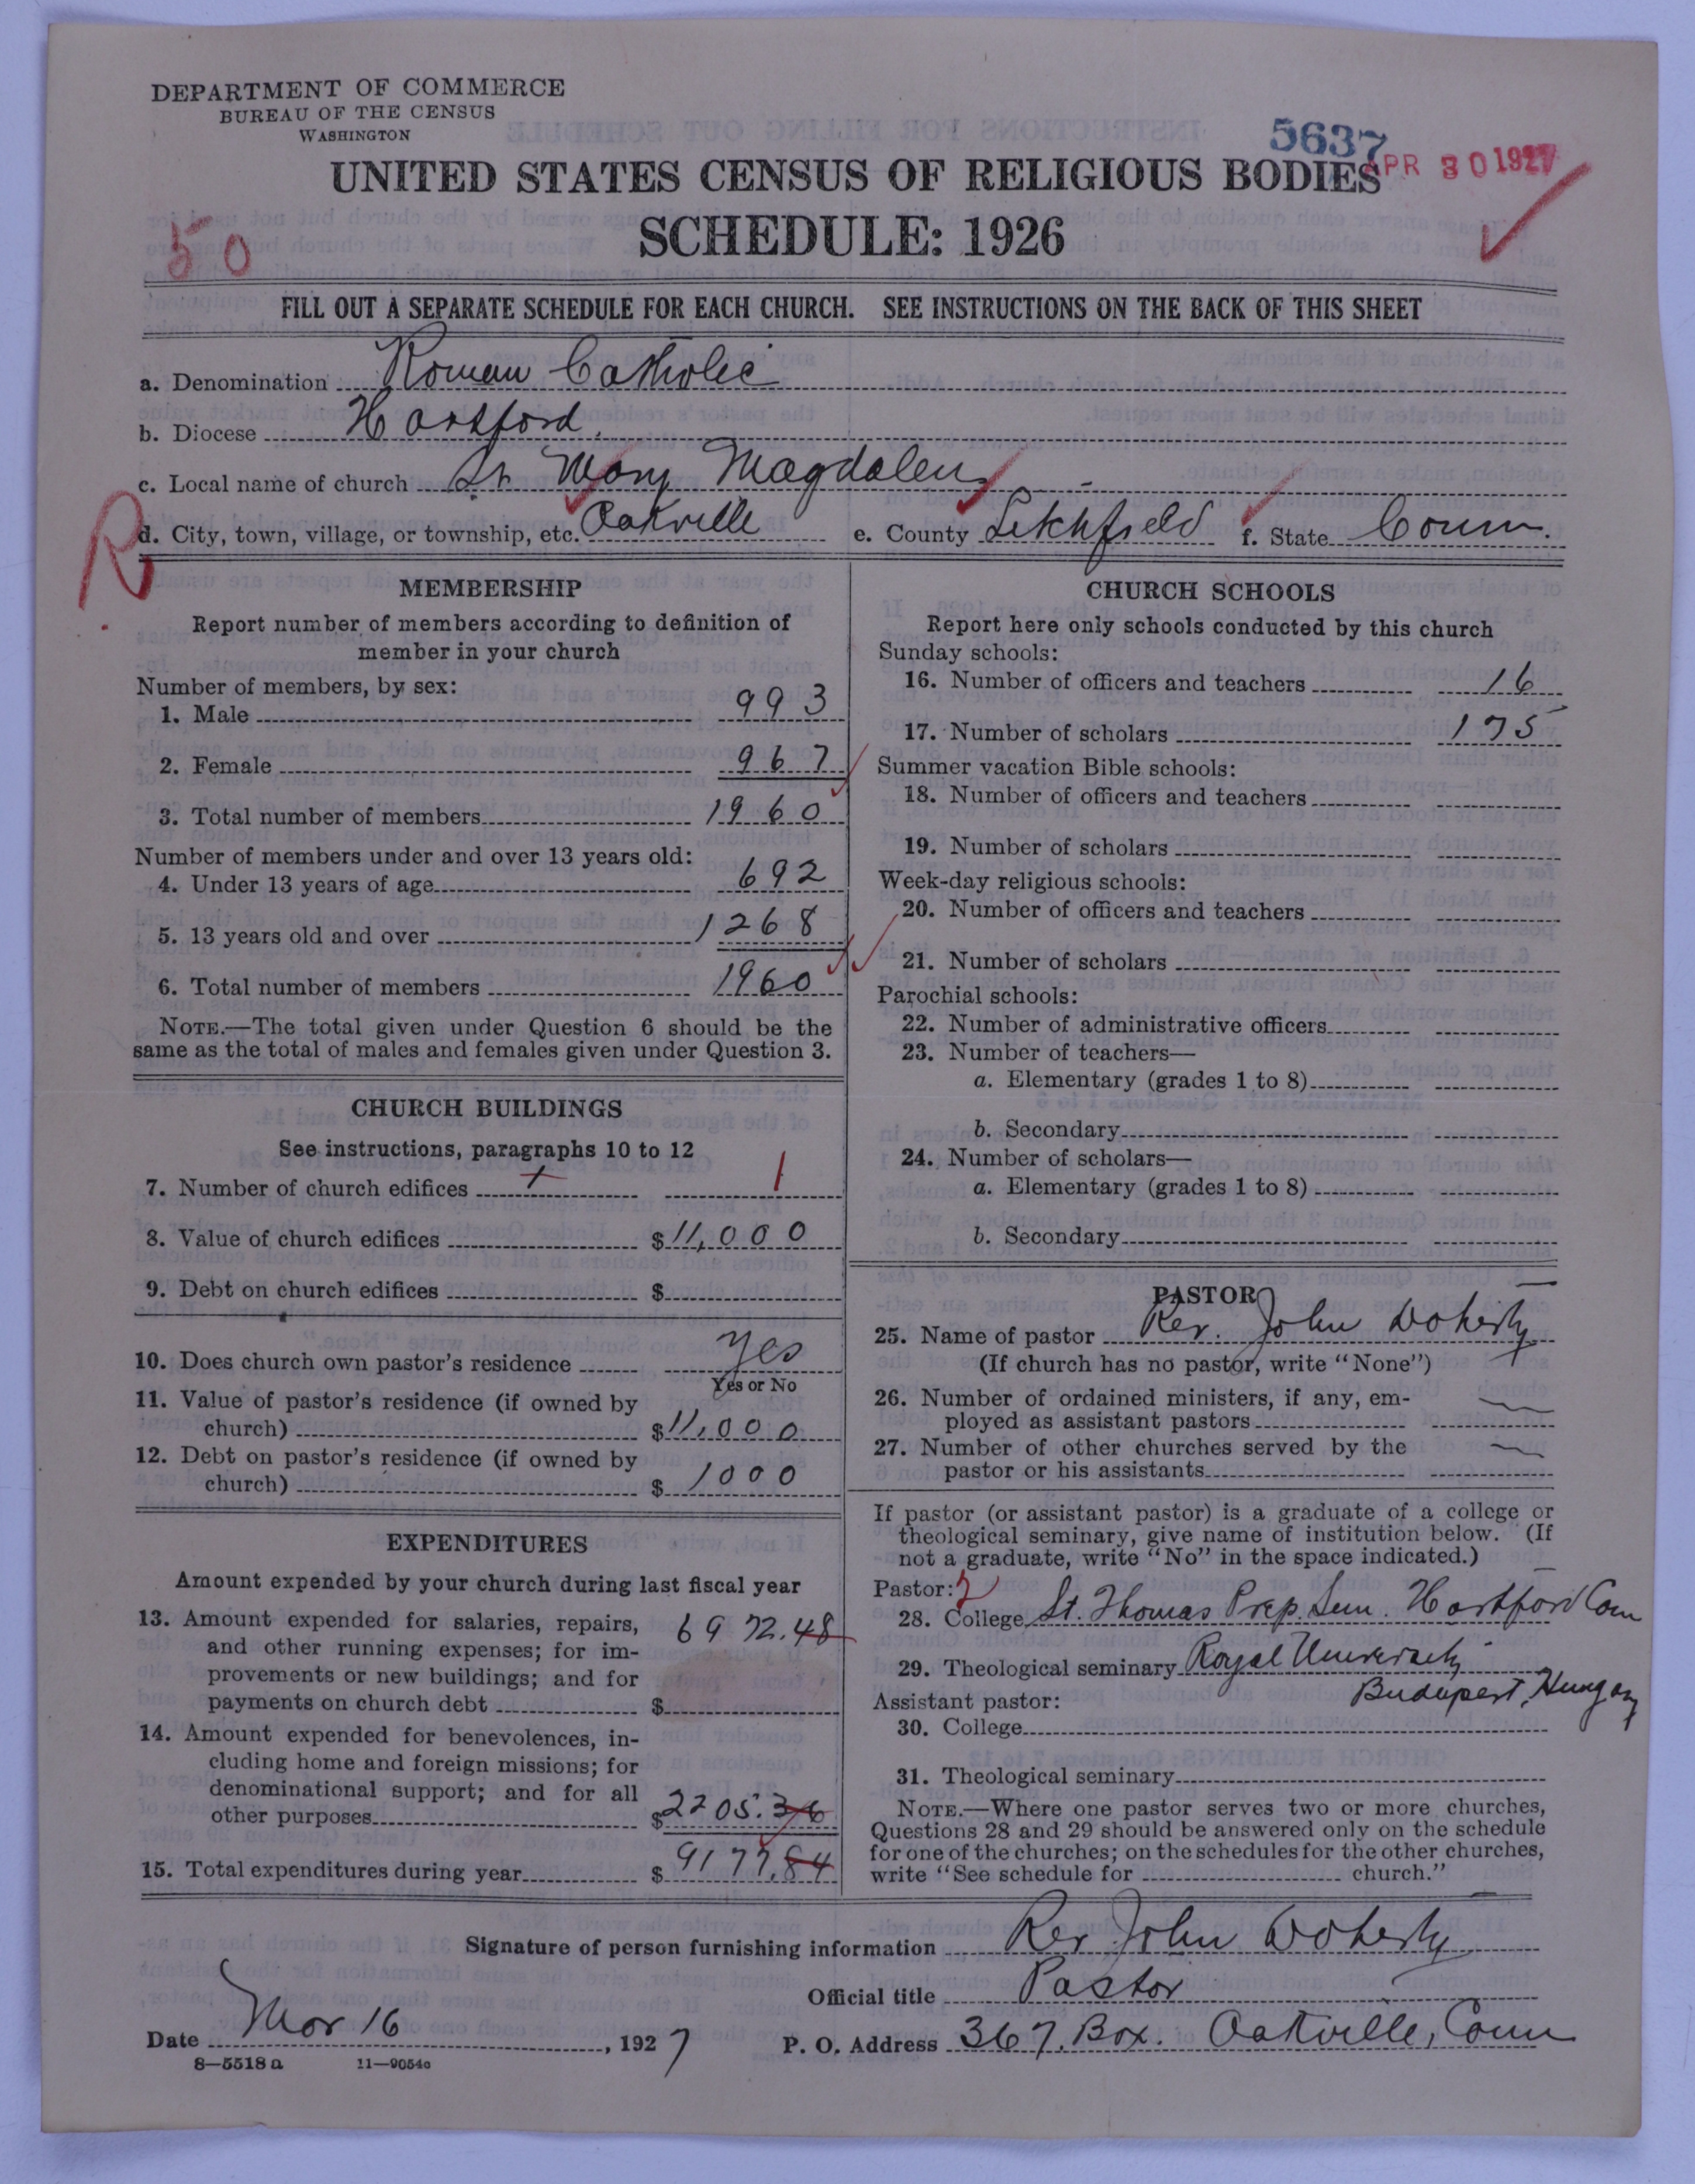 DEPARTMENT OF COMMERCE
BUREAU OF THE CENSUS
WASHINGTON
5637
APR 30 1927
UNITED STATES CENSUS OF RELIGIOUS BODIES
SCHEDULE: 1926
50
FILL OUT A SEPARATE SCHEDULE FOR EACH CHURCH. SEE INSTRUCTIONS ON THE BACK OF THIS SHEET
a. Denomination Roman Catholic
b. Diocese Hartford.
c. Local name of church St. Mary Magdalen
R
d. City, town, village, or township, etc. Oakville e. County Litchfield f. State Conn.
MEMBERSHIP
Report number of members according to definition of
member in your church
Number of members, by sex:
1. Male 993
2. Female 967
3. Total number of members 1960
Number of members under and over 13 years old:
4. Under 13 years of age 692
5. 13 years old and over 1268
6. Total number of members 1960
NOTE.—The total given under Question 6 should be the
same as the total of males and females given under Question 3.
CHURCH BUILDINGS
See instructions, paragraphs 10 to 12
7. Number of church edifices 1 1
8. Value of church edifices $11,000
9. Debt on church edifices $
10. Does church own pastor's residence Yes
Yes or No
11. Value of pastor's residence (if owned by
church) $11,000
12. Debt on pastor's residence (if owned by
church) $1000
EXPENDITURES
Amount expended by your church during last fiscal year
13. Amount expended for salaries, repairs, 6972.48
and other running expenses; for im-
provements or new buildings; and for
payments on church debt $
14. Amount expended for benevolences, in-
cluding home and foreign missions; for
denominational support; and for all
other purposes $2205.36
15. Total expenditures during year $9177.84
CHURCH SCHOOLS
Report here only schools conducted by this church
Sunday schools:
16. Number of officers and teachers 16
17. Number of scholars 175
Summer vacation Bible schools:
18. Number of officers and teachers
19. Number of scholars
Week-day religious schools:
20. Number of officers and teachers
21. Number of scholars
Parochial schools:
22. Number of administrative officers
23. Number of teachers—
a. Elementary (grades 1 to 8)
b. Secondary
24. Number of scholars—
a. Elementary (grades 1 to 8)
b. Secondary
PASTOR
25. Name of pastor Rev. John Doherty
(If church has no pastor, write "None")
26. Number of ordained ministers, if any, em-
ployed as assistant pastors
27. Number of other churches served by the
pastor or his assistants
If pastor (or assistant pastor) is a graduate of a college or
theological seminary, give name of institution below. (If
not a graduate, write "No" in the space indicated.)
Pastor: 2
28. College St. Thomas Prep. Sem. Hartford Conn
29. Theological seminary Royal University
Budapest, Hungary
Assistant pastor:
30. College
31. Theological seminary
NOTE.—Where one pastor serves two or more churches,
Questions 28 and 29 should be answered only on the schedule
for one of the churches; on the schedules for the other churches,
write "See schedule for church."
Signature of person furnishing information Rev John Doherty
Official title Pastor
Date Mar 16, 1927 P. O. Address 367, Box. Oakville, Conn
8—5518 a 11—9054c